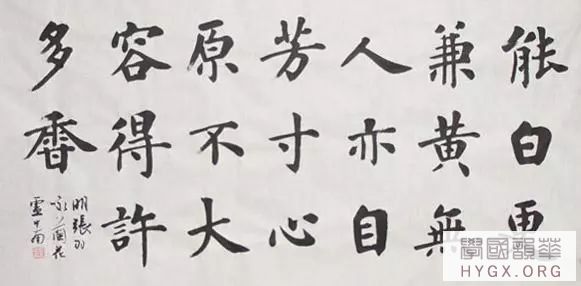 能白更
兼黃無
人亦自
芳寸心
原不大
容得許
多香
明張羽
詠蘭花
盧中南
學國韻華
HYGX.ORG